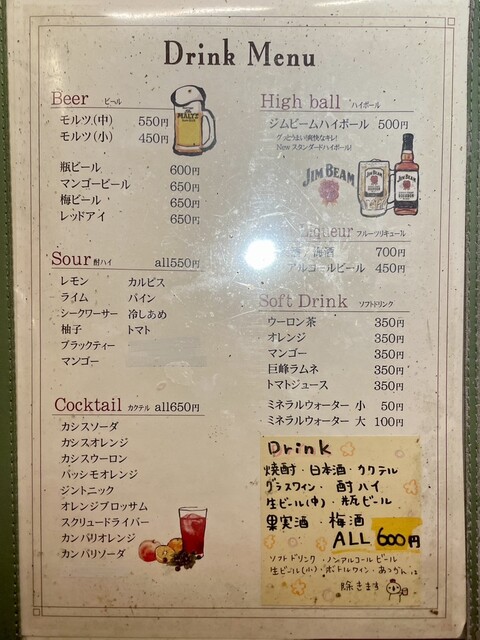 Drink Menu
Beer ビール
モルツ(中) 550円
モルツ(小) 450円
MALTZ
瓶ビール 600円
マンゴービール 650円
梅ビール 650円
レッドアイ 650円
Sour 酎ハイ all550円
レモン カルピス
ライム パイン
シークワーサー 冷しあめ
柚子 トマト
ブラックティー
マンゴー
Cocktail カクテル all650円
カシスソーダ
カシスオレンジ
カシスウーロン
パッシモオレンジ
ジントニック
オレンジブロッサム
スクリュードライバー
カンパリオレンジ
カンパリソーダ
High ball ハイボール
ジムビームハイボール 500円
グッとうまい!爽快なキレ!
New スタンダードハイボール!
JIM BEAM
フルーツリキュール
梅酒 700円
アルコールビール 450円
Soft Drink ソフトドリンク
ウーロン茶 350円
オレンジ 350円
マンゴー 350円
巨峰ラムネ 350円
トマトジュース 350円
ミネラルウォーター 小 50円
ミネラルウォーター 大 100円
Drink
焼酎・日本酒・カクテル
グラスワイン・酎ハイ
生ビール(中)・瓶ビール
果実酒・梅酒
ALL 600円
ソフトドリンク・ノンアルコールビール
生ビール(小)・ボトルワイン・あつかんは
除きます